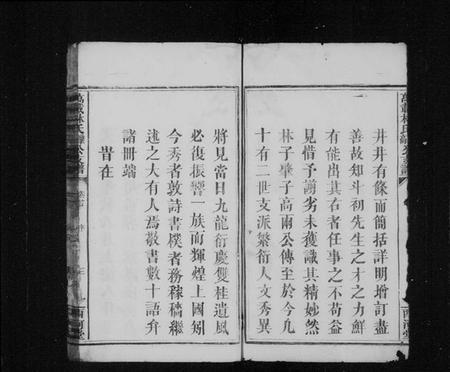 井井有條而簡括詳明增訂盡
善故知斗初先生之才之力鮮
有能出其右者任事之不苟益
見惜予謭劣未獲識其精妙然
林子肇子高南公傳至於今九
十有二世支派繁衍人文秀異
將見當日九龍衍慶雙桂遺風
必復振響一族而輝煌上國矧
今秀者敦詩書樸者務稼穡繼
述之大有人焉敬書數十語弁
諸冊端
旹在